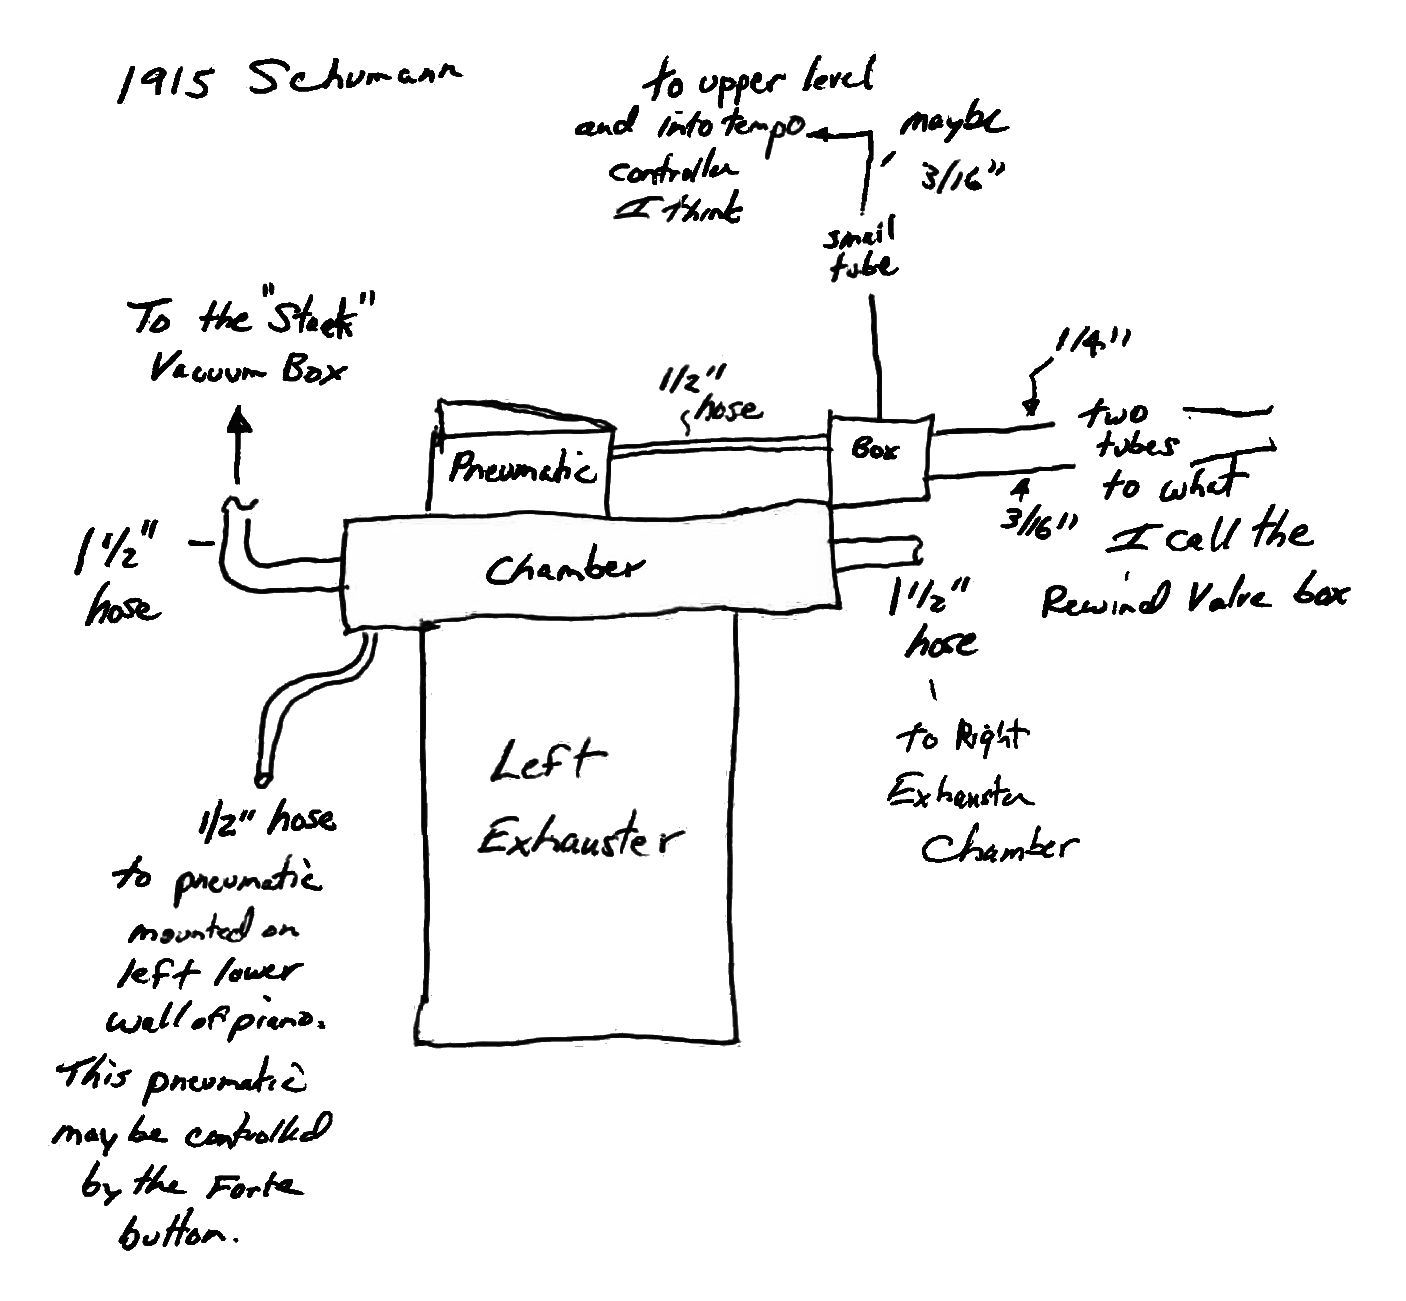 1915 Schumann
to upper level
and into tempo
controller
I think
maybe
3/16"
small
tube
To the "Stack"
Vacuum Box
1/2"
hose
1/4"
Pneumatic
Box
two
tubes
to what
I call the
Rewind Valve box
3/16"
1 1/2"
hose
Chamber
1 1/2"
hose
to Right
Exhauster
Chamber
Left
Exhauster
1/2" hose
to pneumatic
mounted on
left lower
wall of piano.
This pneumatic
may be controlled
by the Forte
button.